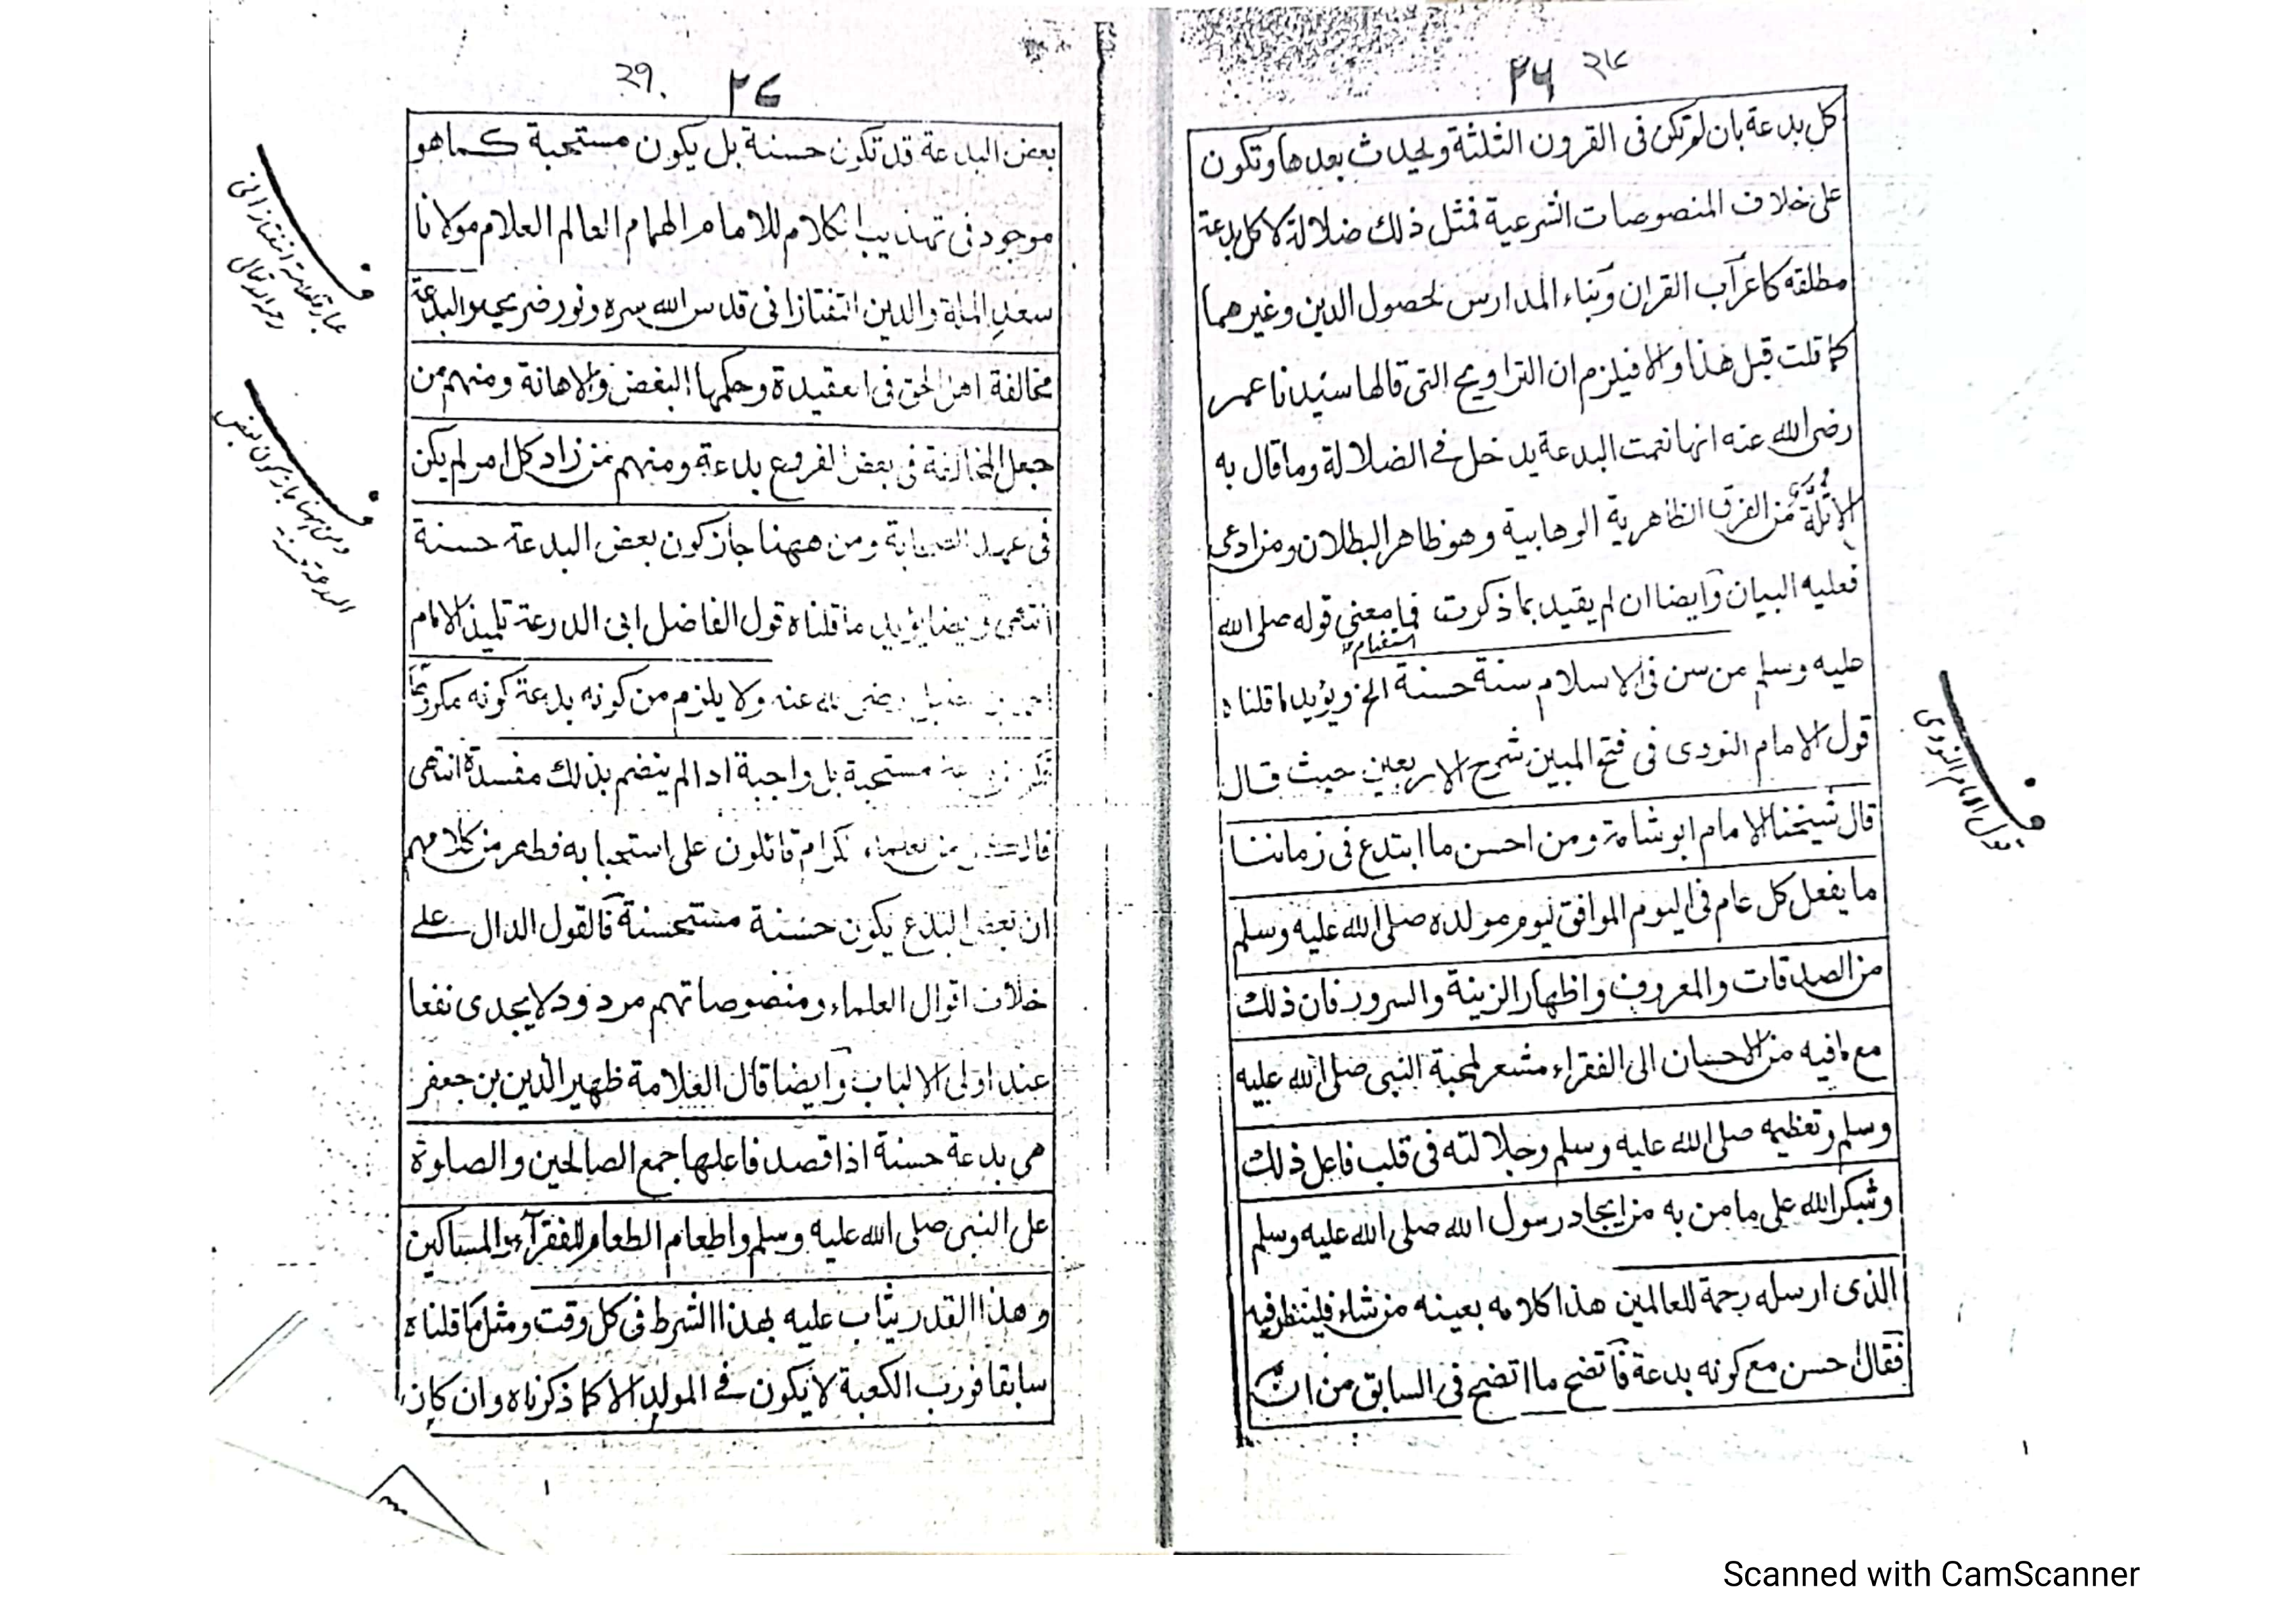 ۲۶ २८
كل بدعة بان لم تكن فى القرون الثلثة ويحدث بعدها وتكون
على خلاف المنصوصات الشرعية فمثل ذلك ضلالة لا كل بدعة
مطلقه كاعراب القران وبناء المدارس لحصول الدين وغيرهما
كما قلت قبل هذا والا فيلزم ان التراويح التى قالها سيدنا عمر
رضى الله عنه انها نعمت البدعة يدخل فى الضلالة وما قال به
من الفرق الظاهرية الوهابية وهو ظاهر البطلان ومن ادعى
فعليه البيان وايضا ان لم يقيد بما ذكرت فما معنى قوله صلى الله
استفهام
عليه وسلم من سن فى الاسلام سنة حسنة الخ ويؤيد ما قلناه
قول الامام النودى فى فتح المبين شرح الاربعين حيث قال
قال شيخنا الامام ابو شامة ومن احسن ما ابتدع فى زماننا
ما يفعل كل عام فى اليوم الموافق ليوم مولده صلى الله عليه وسلم
من الصدقات والمعروف واظهار الزينة والسرور فان ذلك
مع ما فيه من الاحسان الى الفقراء مشعر لمحبة النبى صلى الله عليه
وسلم وتعظيمه صلى الله عليه وسلم وجلالته فى قلب فاعل ذلك
وشكر الله على ما من به من ايجاد رسول الله صلى الله عليه وسلم
الذى ارسله رحمة للعالمين هذا كلامه بعينه من شاء فلينظر فيه
فقال احسن مع كونه بدعة فاتضح ما اتضح فى السابق من ان
قول الامام النودى
۲۷ २९
بعض البدعة قد تكون حسنة بل يكون مستحبة كما هو
موجود فى تهذيب الكلام للامام الهمام العالم العلام مولانا
سعد الملة والدين التفتازانى قدس الله سره ونور ضريحه والبدعة
مخالفة اهل الحق فى العقيدة وحكمها البغض والاهانة ومنهم من
جعل المخالفة فى بعض الفروع بدعة ومنهم من زاد كل امر لم يكن
فى عهد الصحابة ومن ههنا جاز كون بعض البدعة حسنة
انتهى وايضا يؤيد ما قلناه قول الفاضل ابى الدرعة تلميذ الامام
احمد بن حنبل رضى الله عنه ولا يلزم من كونه بدعة كونه مكروها
مستحبة بل واجبة اذا لم ينضم بذلك مفسدة انتهى
من العلماء الكرام قائلون على استحبابه فظهر من كلامهم
ان بعض البدع يكون حسنة مستحسنة فالقول الدال على
خلاف اقوال العلماء ومنصوصاتهم مردود لا يجدى نفعا
عند اولى الالباب وايضا قال العلامة ظهير الدين بن جعفر
هى بدعة حسنة اذا قصد فاعلها جمع الصالحين والصلوة
على النبى صلى الله عليه وسلم واطعام الطعام للفقراء والمساكين
وهذا القدر يثاب عليه بهذا الشرط فى كل وقت ومثل ما قلناه
سابقا فورب الكعبة لا يكون فى المولد الا كما ذكرناه وان كان
Scanned with CamScanner